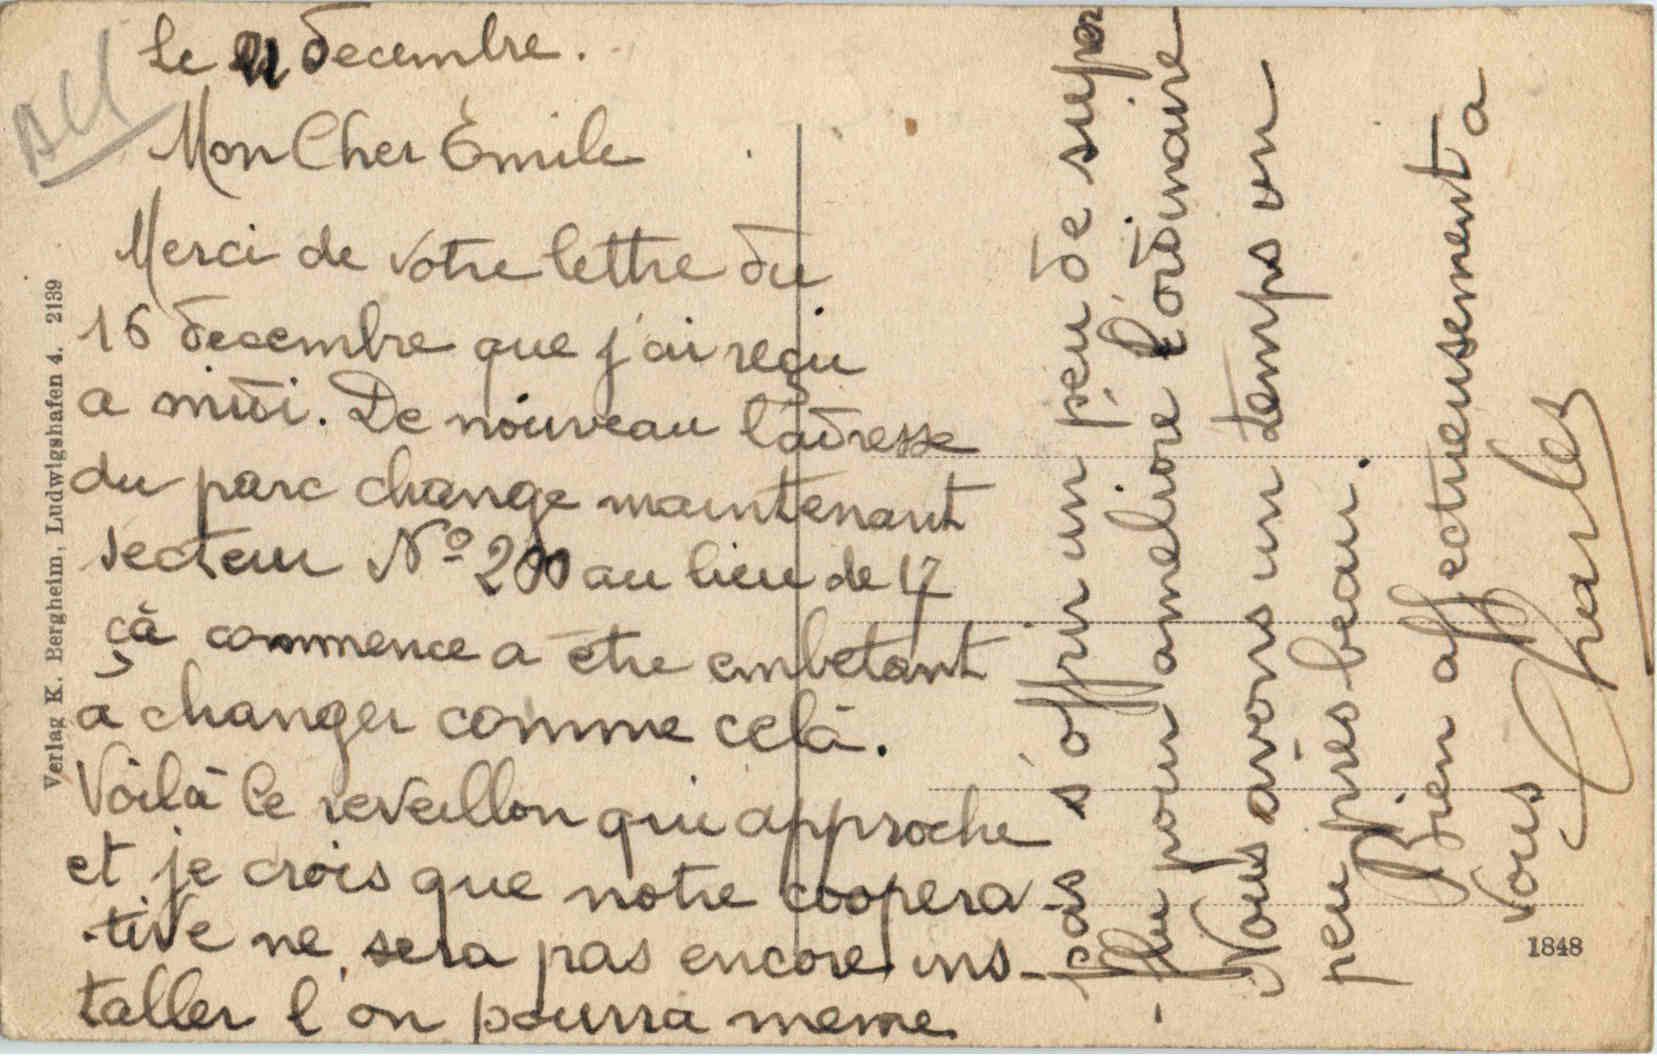 le 21 decembre.
Mon Cher Émile
Merci de votre lettre du
16 decembre que j'ai reçu
a midi. De nouveau l'adresse
du parc change maintenant
secteur Nº 200 au lieu de 17
çà commence a être embetant
a changer comme celà.
Voilà le reveillon qui approche
et je crois que notre coopera-
-tive ne sera pas encore ins-
taller l'on pourra meme
pas s'offrir un peu de super
-flu pour ameliore l'ordinaire
Nous avons un temps un
peu près beau.
Bien affectueusement a
vous Charles
Verlag K. Bergheim, Ludwigshafen 4. 2139
1848